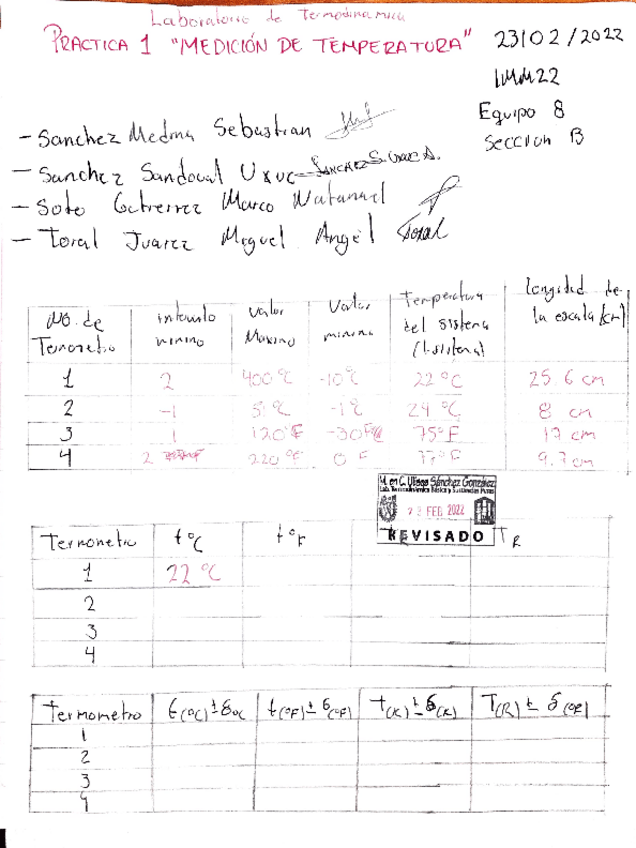 Laboratorio de Termodinamica
PRACTICA 1 "MEDICIÓN DE TEMPERATURA" 23/02/2022
1MM22
Equipo 8
Seccion B
- Sanchez Medina Sebastian
- Sanchez Sandoval Uxue
- Soto Gutierrez Marco Natanael
- Toral Juarez Miguel Angel Toral
No. de Termometro intervalo minino valor Maximo Valor minimo Temperatura del sistema (t.sistema) longitud de la escala (cm)
1 2 400 °C -10°C 22 °C 25.6 cm
2 -1 °C -1°C 24 °C 8 cm
3 1 120°F -30F 75°F 17 cm
4 2 220 °F 0 F 77°F 9.7 cm
M. en C. Ulises Sánchez González
Lab. Termodinámica Básica y Sustancias Puras
23 FEB 2022
REVISADO
Termometro t°C t°F TR
1 22 °C
2
3
4
Termometro t(°C)±δ°C t(°F)±δ(°F) t(K)±δ(K) T(R)±δ(°R)
1
2
3
4